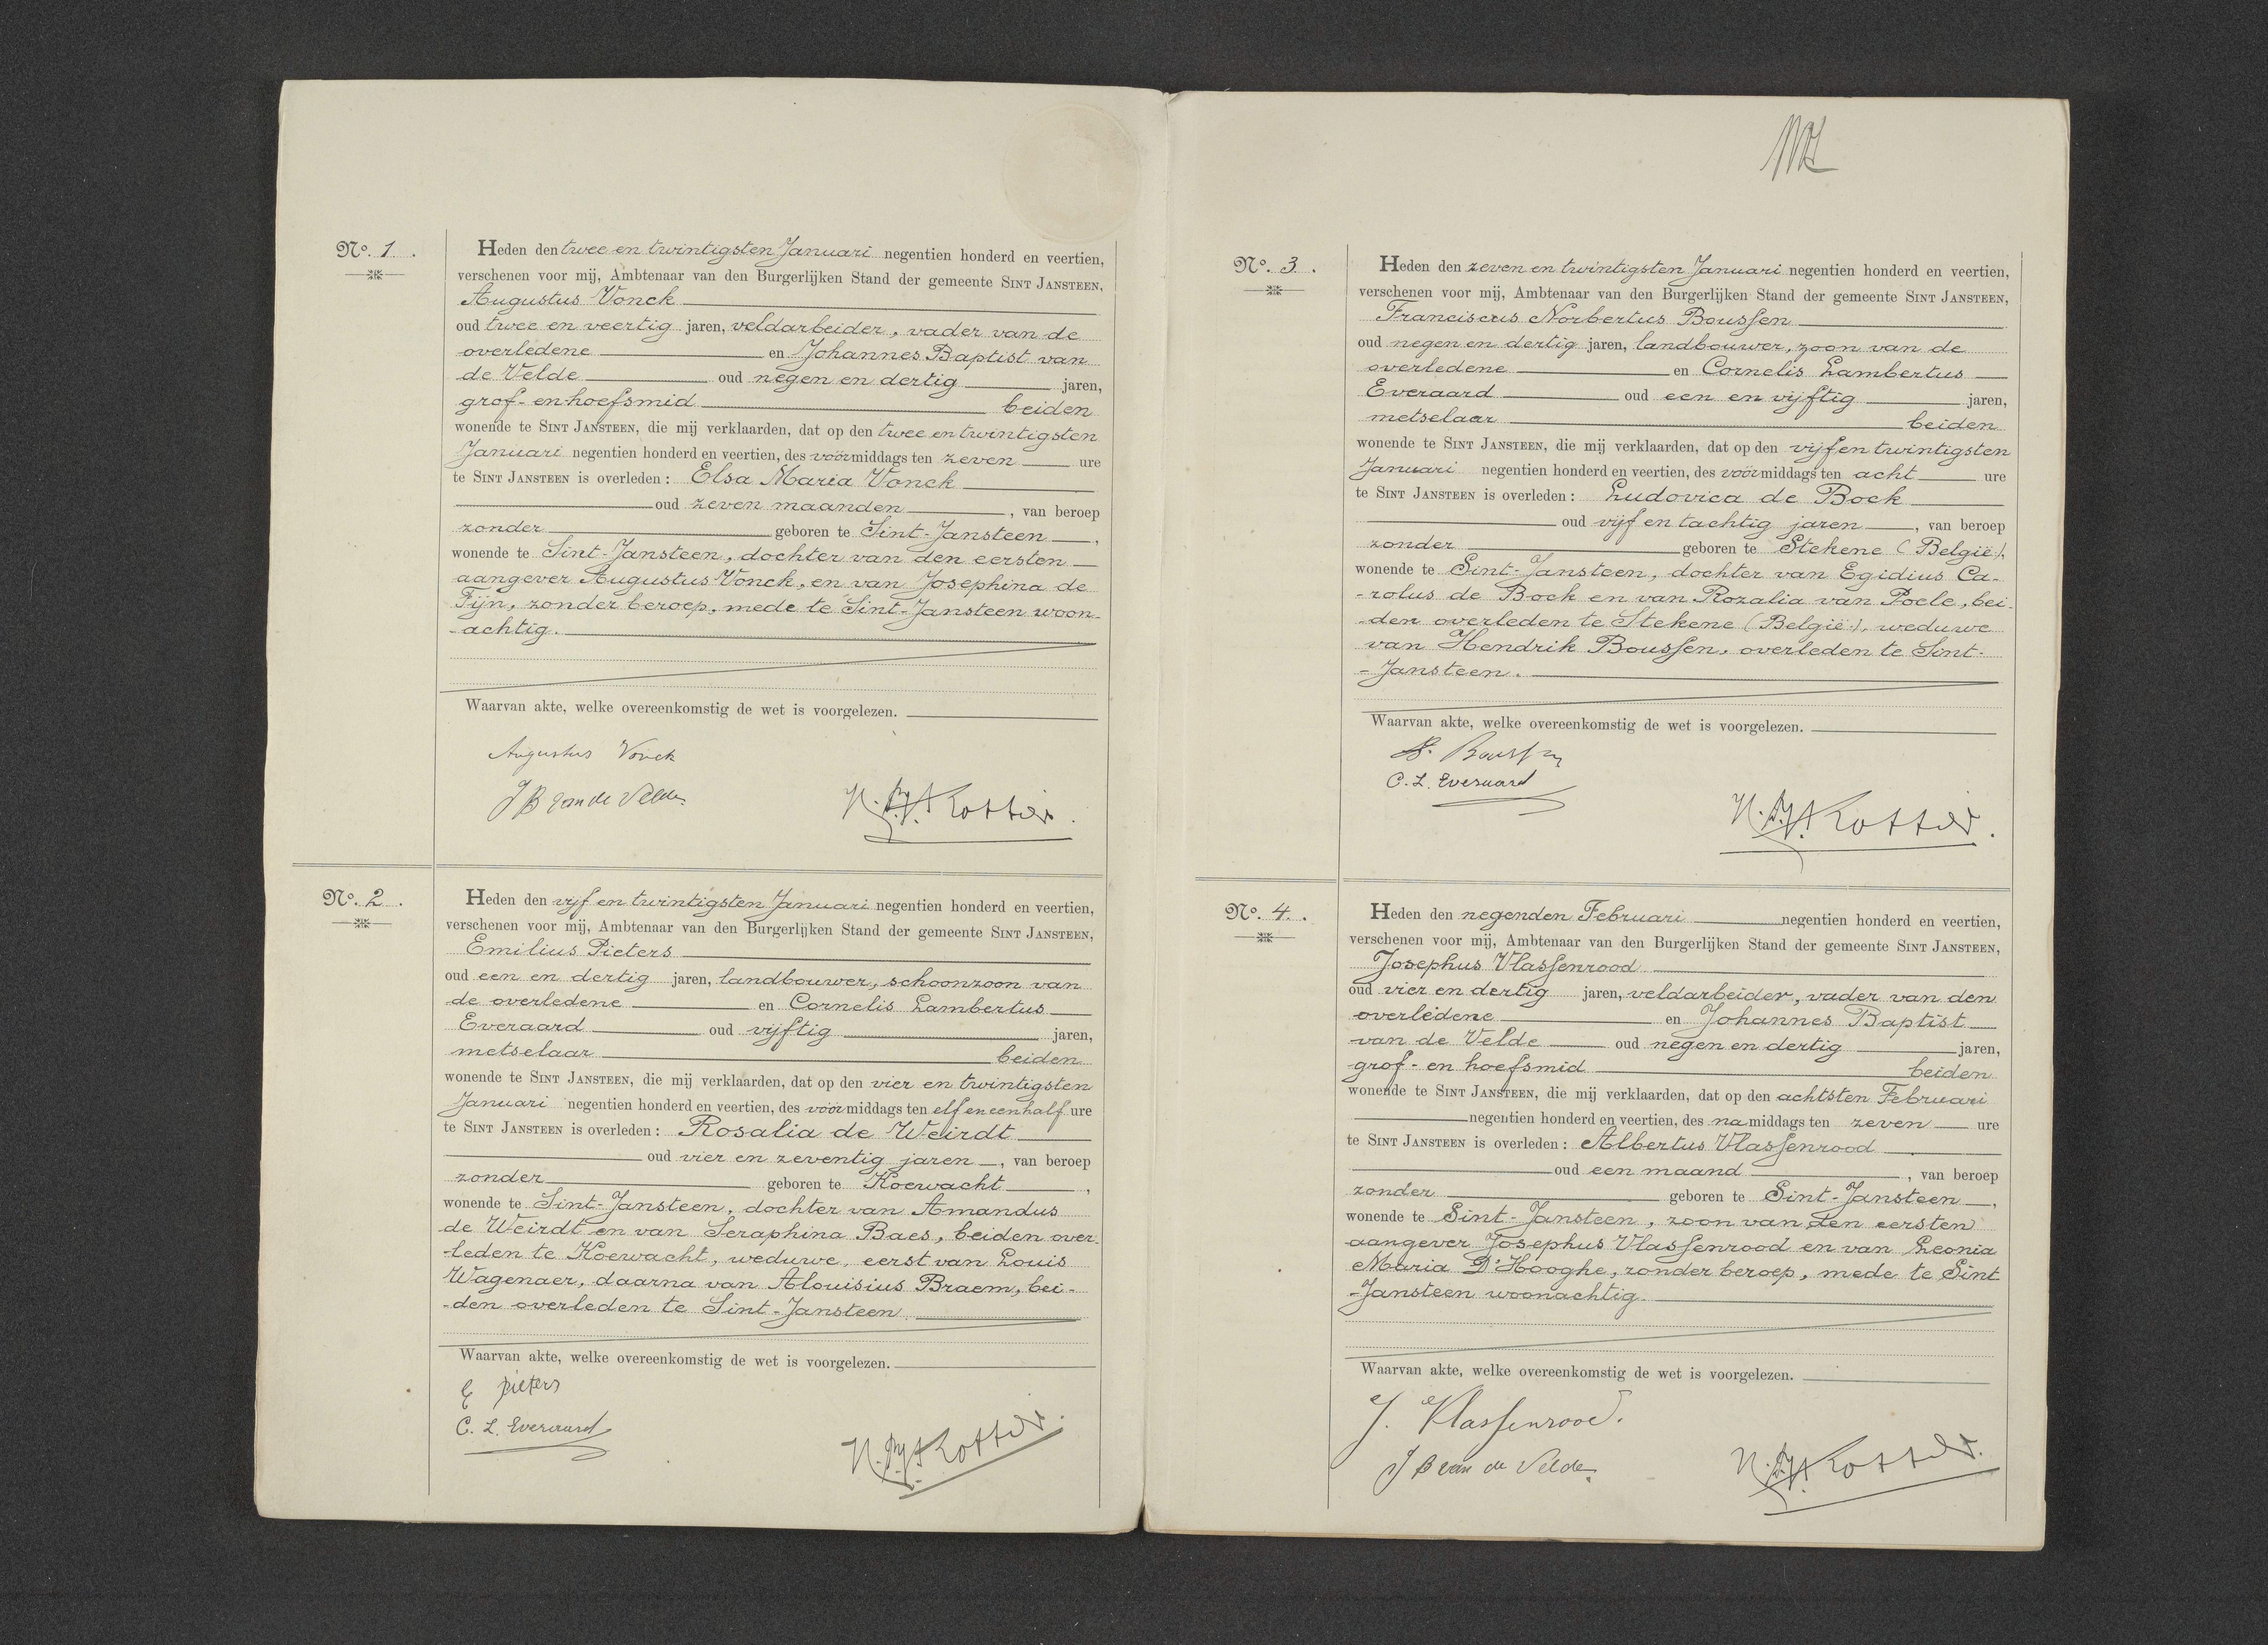 No. 1.
Heden den twee en twintigsten Januari negentien honderd en veertien,
verschenen voor mij, Ambtenaar van den Burgerlijken Stand der gemeente SINT JANSTEEN,
Augustus Vonck
oud twee en veertig jaren, veldarbeider, vader van de
overledene en Johannes Baptist van
de Velde oud negen en dertig jaren,
grof- en hoefsmid beiden
wonende te SINT JANSTEEN, die mij verklaarden, dat op den twee en twintigsten
Januari negentien honderd en veertien, des voormiddags ten zeven ure
te SINT JANSTEEN is overleden: Elsa Maria Vonck
oud zeven maanden, van beroep
zonder geboren te Sint-Jansteen,
wonende te Sint-Jansteen, dochter van den eersten
aangever Augustus Vonck, en van Josephina de
Fijn, zonder beroep, mede te Sint-Jansteen woon-
-achtig.
Waarvan akte, welke overeenkomstig de wet is voorgelezen.
Augustus Vonck
J B van de Velde
Kotter.
No. 2.
Heden den vijf en twintigsten Januari negentien honderd en veertien,
verschenen voor mij, Ambtenaar van den Burgerlijken Stand der gemeente SINT JANSTEEN,
Emilius Pieters
oud een en dertig jaren, landbouwer, schoonzoon van
de overledene en Cornelis Lambertus
Everaard oud vijftig jaren,
metselaar beiden
wonende te SINT JANSTEEN, die mij verklaarden, dat op den vier en twintigsten
Januari negentien honderd en veertien, des voormiddags ten elf en eenhalf ure
te SINT JANSTEEN is overleden: Rosalia de Weirdt
oud vier en zeventig jaren, van beroep
zonder geboren te Koewacht,
wonende te Sint-Jansteen, dochter van Amandus
de Weirdt en van Seraphina Baes, beiden over-
-leden te Koewacht, weduwe, eerst van Louis
Wagenaer, daarna van Alouisius Braem, bei-
-den overleden te Sint-Jansteen.
Waarvan akte, welke overeenkomstig de wet is voorgelezen.
E pieters
C. L. Everaard
Kotter.
No. 3.
Heden den zeven en twintigsten Januari negentien honderd en veertien,
verschenen voor mij, Ambtenaar van den Burgerlijken Stand der gemeente SINT JANSTEEN,
Franciscus Norbertus Boussen
oud negen en dertig jaren, landbouwer, zoon van de
overledene en Cornelis Lambertus
Everaard oud een en vijftig jaren,
metselaar beiden
wonende te SINT JANSTEEN, die mij verklaarden, dat op den vijf en twintigsten
Januari negentien honderd en veertien, des voormiddags ten acht ure
te SINT JANSTEEN is overleden: Ludovica de Bock
oud vijf en tachtig jaren, van beroep
zonder geboren te Stekene (België),
wonende te Sint-Jansteen, dochter van Egidius Ca-
-rolus de Bock en van Rozalia van Poele, bei-
-den overleden te Stekene (België), weduwe
van Hendrik Boussen, overleden te Sint-
-Jansteen.
Waarvan akte, welke overeenkomstig de wet is voorgelezen.
Boussen
C. L. Everaard
Kotter.
No. 4.
Heden den negenden Februari negentien honderd en veertien,
verschenen voor mij, Ambtenaar van den Burgerlijken Stand der gemeente SINT JANSTEEN,
Josephus Vlassenrood
oud vier en dertig jaren, veldarbeider, vader van den
overledene en Johannes Baptist
van de Velde oud negen en dertig jaren,
grof- en hoefsmid beiden
wonende te SINT JANSTEEN, die mij verklaarden, dat op den achtsten Februari
negentien honderd en veertien, des namiddags ten zeven ure
te SINT JANSTEEN is overleden: Albertus Vlassenrood
oud een maand, van beroep
zonder geboren te Sint-Jansteen,
wonende te Sint-Jansteen, zoon van den eersten
aangever Josephus Vlassenrood en van Leonia
Maria D'Hooghe, zonder beroep, mede te Sint
-Jansteen woonachtig.
Waarvan akte, welke overeenkomstig de wet is voorgelezen.
J. Vlassenrood.
J B van de Velde
Kotter.